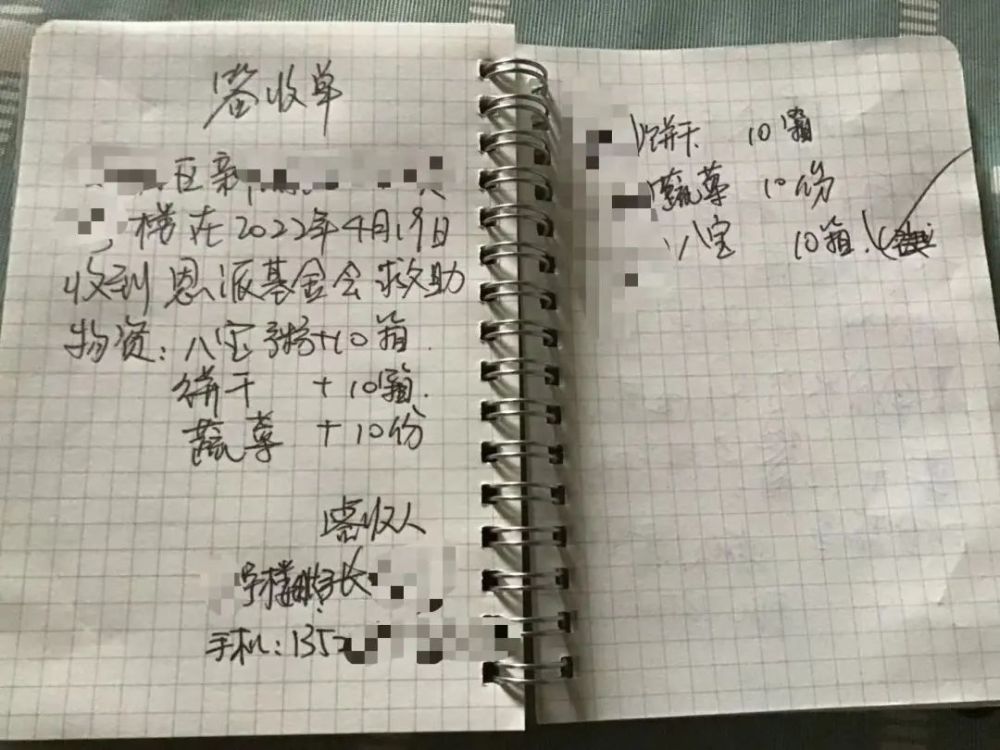 签收单
区新
楼在2022年4月19日
收到恩派基金会救助
物资:八宝粥+10箱.
饼干 +10箱.
蔬菜 +10份
签收人
号楼 长
手机:135
饼干 10箱
蔬菜 10份
八宝 10箱.